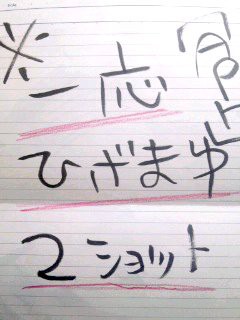 ※一応
ひざまゆ
2ショット